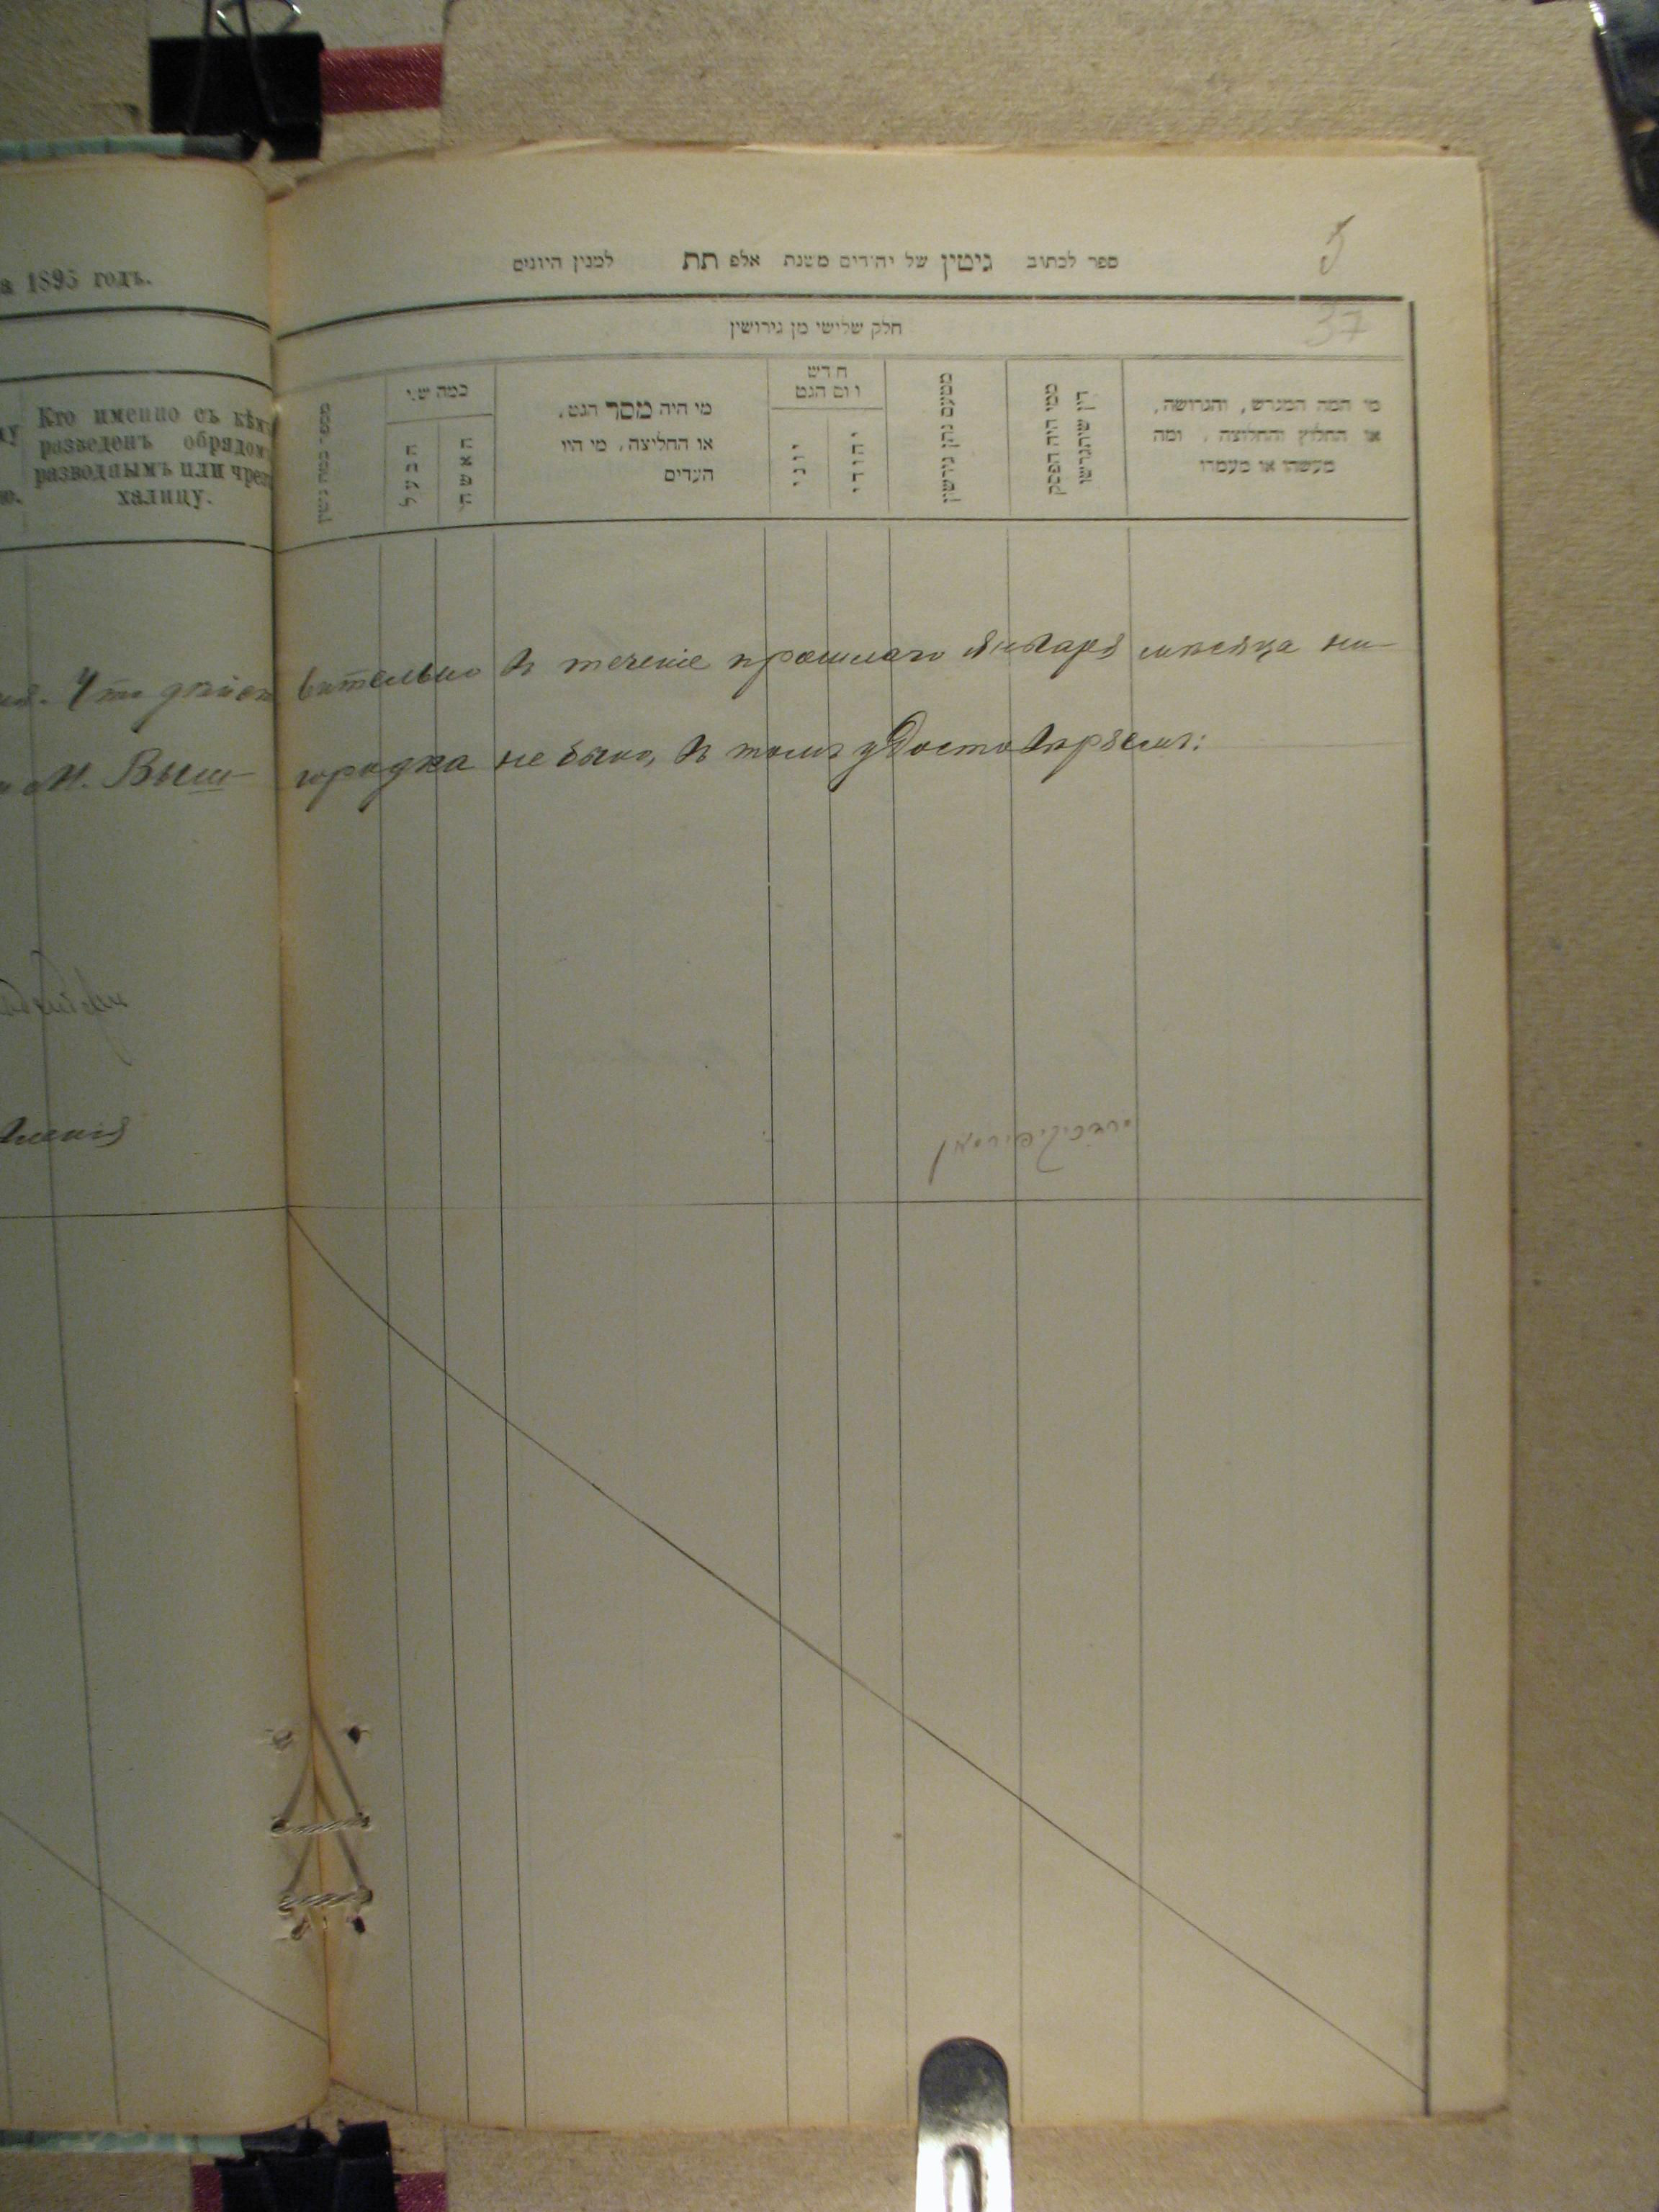 а 1895 годъ.
Кто именно съ кѣмъ
разведенъ обрядом
разводнымъ или чрез
халицу.
ספר לכתוב גיטין של יהודים משנת אלפ תת למנין היונים
5
37
חלק שלישי מן גירושין
מי המה המגרש, והגרושה,
או החלוץ והחלוצה, ומה
מעשהו או מעמדו
ממי היה הפסק
דין שיתגרשו
מטעם נתן גירשין
חדש
ויום הגט
יהודי
יוני
מי היה מסר הגט,
או החליצה, מי היו
העדים
כמה שני
האשה
הבעל
מספר כמה גיטין
Что дѣйст вительно въ теченіе прошлаго Января мѣсяца ни-
М. Выш- городка не было, въ томъ удостовѣряемъ: